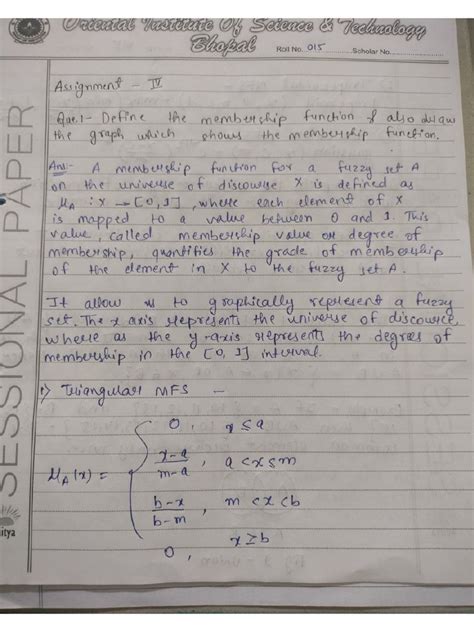 Oriental Institute Of Science & Technology
Bhopal
Roll No. 015 Scholar No.
SESSIONAL PAPER
Assignment - IV
Que:- Define the membership function & also draw
the graph which shows the membership function.
Ans:- A membership function for a fuzzy set A
on the universe of discourse X is defined as
μA : X → [0, 1], where each element of X
is mapped to a value between 0 and 1. This
value, called membership value or degree of
membership, quantifies the grade of membership
of the element in X to the fuzzy set A.
It allow us to graphically represent a fuzzy
set. The x axis represents the universe of discource,
where as the y-axis represents the degrees of
membership in the [0, 1] interval.
1) Triangular MFS -
0, x ≤ a
μA(x) = x-a / m-a, a < x ≤ m
b-x / b-m, m < x < b
0, x ≥ b